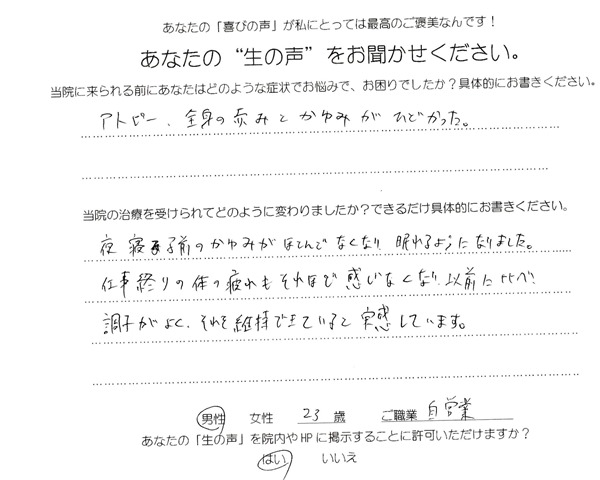 あなたの「喜びの声」が私にとっては最高のご褒美なんです！
あなたの“生の声”をお聞かせください。
当院に来られる前にあなたはどのような症状でお悩みで、お困りでしたか？具体的にお書きください。
アトピー、全身の赤みとかゆみがひどかった。
当院の治療を受けられてどのように変わりましたか？できるだけ具体的にお書きください。
夜寝る前のかゆみがほとんどなくなり眠れるようになりました。
仕事終りの体の疲れもそれほど感じなくなり、以前に比べ
調子がよく、それを維持できていると実感しています。
男性 女性 23 歳 ご職業 自営業
あなたの「生の声」を院内やHPに掲示することに許可いただけますか？
はい いいえ